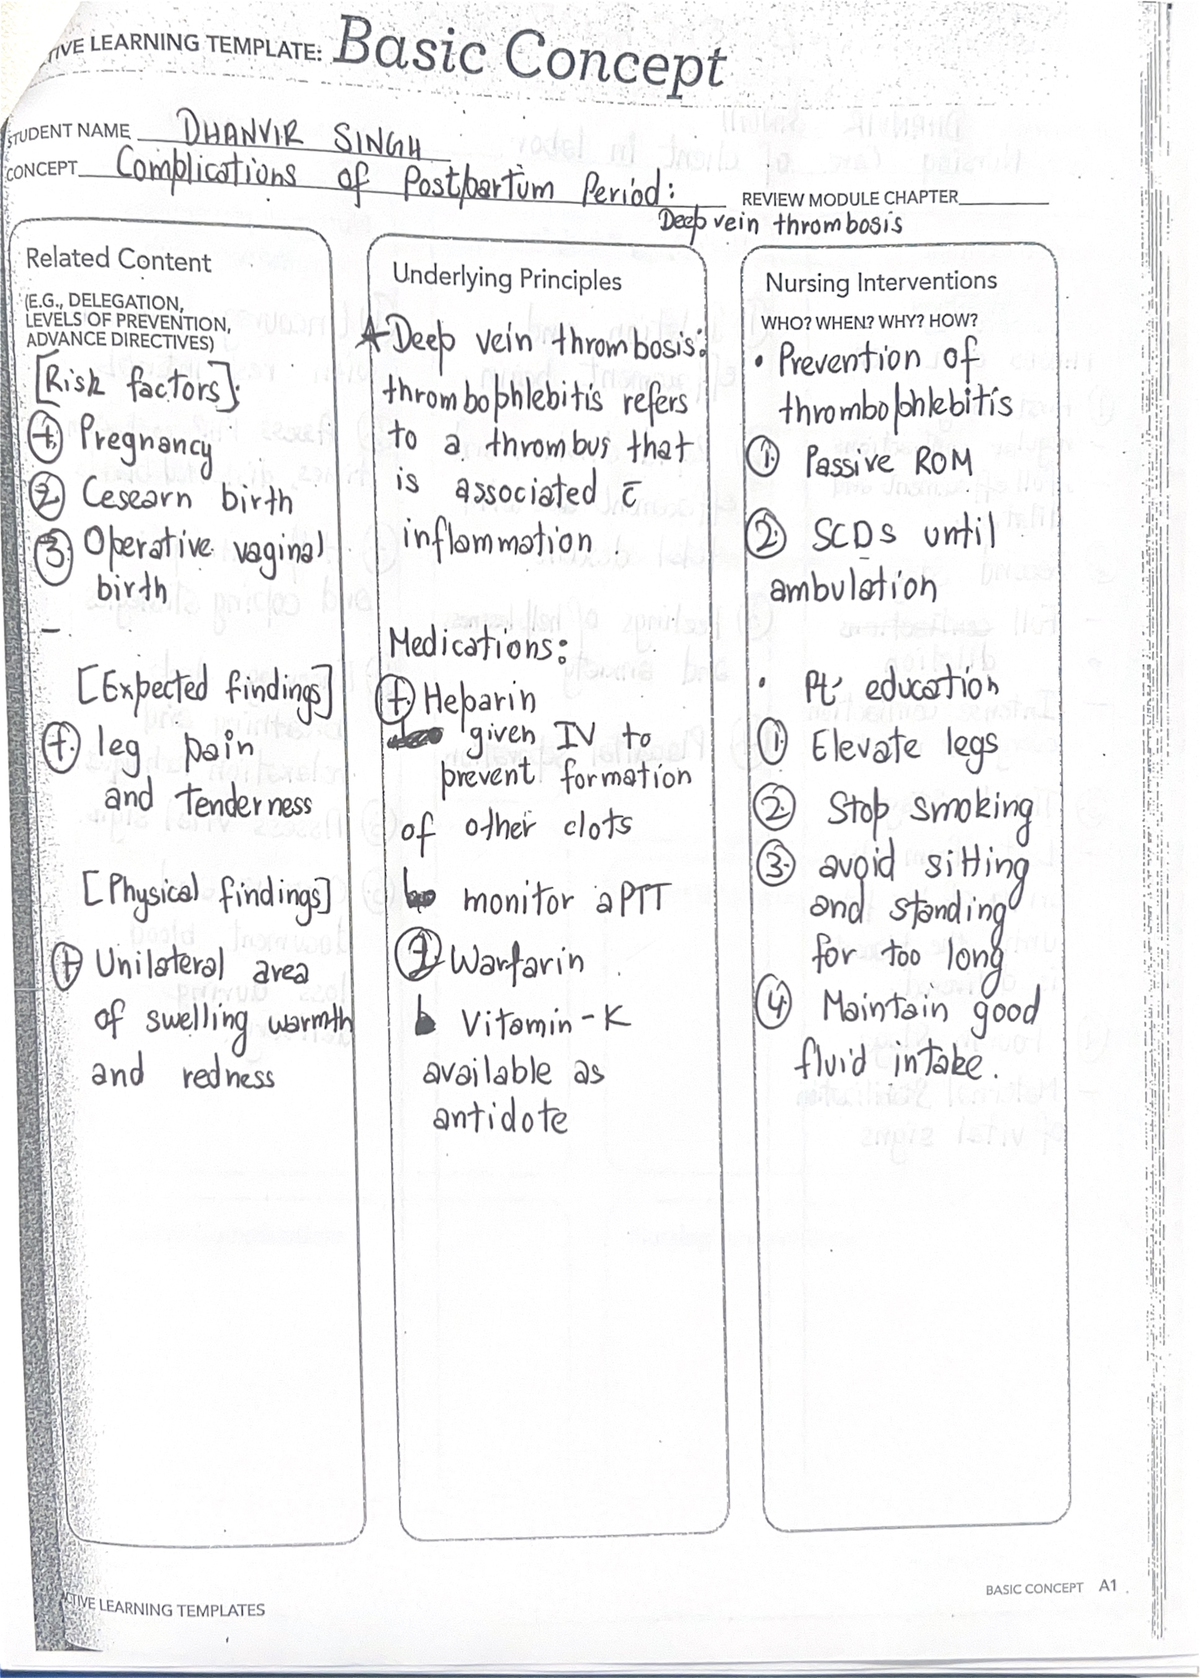 TIVE LEARNING TEMPLATE: Basic Concept
STUDENT NAME DHANVIR SINGH
CONCEPT Complications of Postpartum Period:
REVIEW MODULE CHAPTER
Deep vein thrombosis
Related Content
(E.G., DELEGATION,
LEVELS OF PREVENTION,
ADVANCE DIRECTIVES)
[Risk factors]:
1 Pregnancy
2 Cesearn birth
3. Operative vaginal
birth
–
[Expected findings]
1. leg pain
and tenderness
[Physical findings]
1 Unilateral area
of swelling warmth
and redness
Underlying Principles
★ Deep vein thrombosis:
thrombophlebitis refers
to a thrombus that
is associated c̄
inflammation.
Medications:
1. Heparin
given IV to
prevent formation
of other clots
monitor aPTT
Warfarin
Vitamin-K
available as
antidote
Nursing Interventions
WHO? WHEN? WHY? HOW?
• Prevention of
thrombophlebitis
1. Passive ROM
2. SCDs until
ambulation
• Pt' education
1. Elevate legs
2. Stop smoking
3. avoid sitting
and standing
for too long
4. Maintain good
fluid intake.
TIVE LEARNING TEMPLATES
BASIC CONCEPT A1